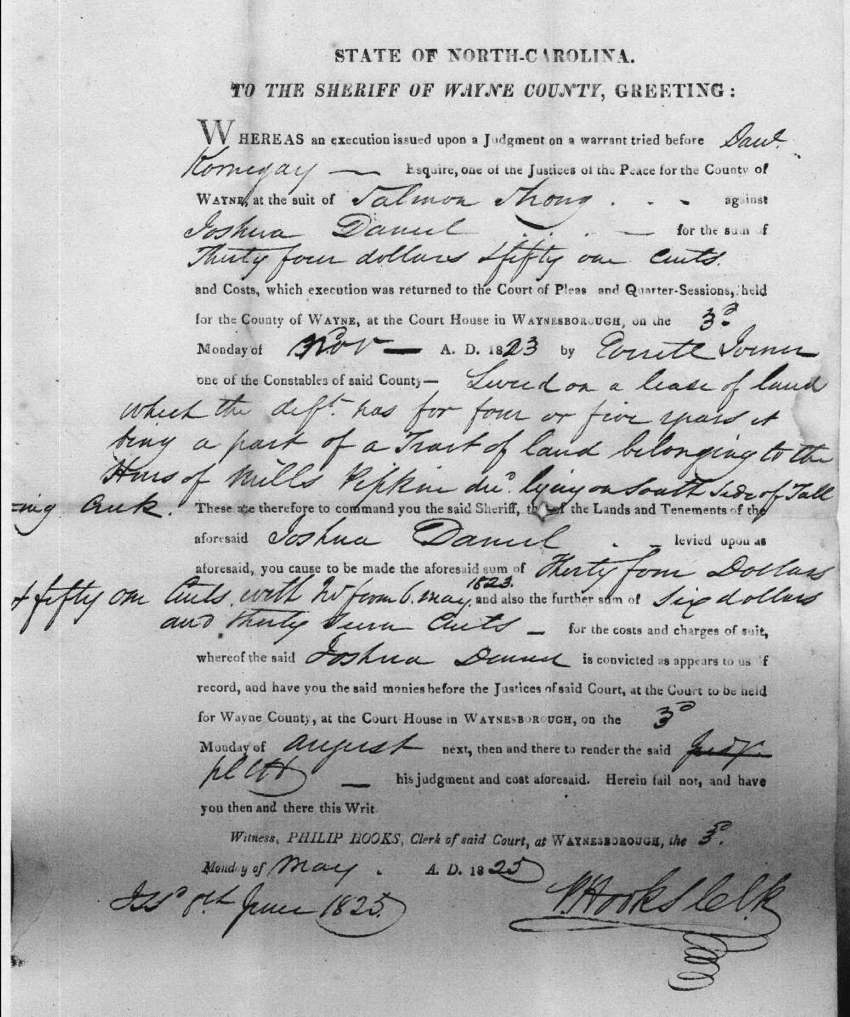 STATE OF NORTH-CAROLINA.
TO THE SHERIFF OF WAYNE COUNTY, GREETING:
WHEREAS an execution issued upon a Judgment on a warrant tried before Danl.
Kornegay — Esquire, one of the Justices of the Peace for the County of
WAYNE, at the suit of Salmon Strong . . - against
Joshua Daniel . . . — for the sum of
Thirty four dollars & fifty one Cents.
and Costs, which execution was returned to the Court of Pleas and Quarter-Sessions, held
for the County of WAYNE, at the Court House in WAYNESBOROUGH, on the 3d
Monday of Nov — A. D. 1823 by Everett
one of the Constables of said County— Levied on a lease of land
which the deft. has for four or five years it
being a part of a Tract of land belonging to the
Heirs of Mills Pipkin decd. lying on South Side of Fall
ing Creek. These are therefore to command you the said Sheriff, that of the Lands and Tenements of the
aforesaid Joshua Daniel . — levied upon as
aforesaid, you cause to be made the aforesaid sum of Thirty four Dollars
& fifty one Cents with from 6. may 1823. and also the further sum of Six dollars
and thirty Seven Cents — for the costs and charges of suit,
whereof the said Joshua Daniel is convicted as appears to us of
record, and have you the said monies before the Justices of said Court, at the Court to be held
for Wayne County, at the Court House in WAYNESBOROUGH, on the 3d
Monday of august next, then and there to render the said
plttf — his judgment and cost aforesaid. Herein fail not, and have
you then and there this Writ.
Witness, PHILIP HOOKS, Clerk of said Court, at WAYNESBOROUGH, the 3d.
Monday of May . A. D. 1825
Issd 8th June 1825.
P. Hooks Clk